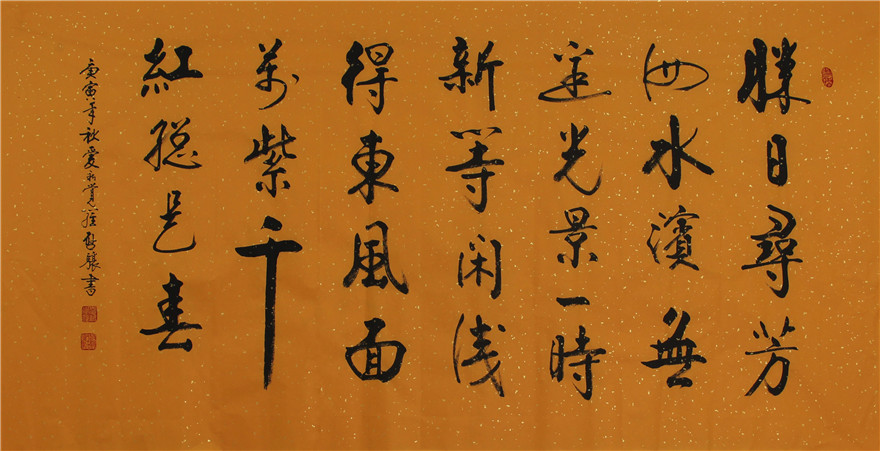 勝日尋芳
泗水濱無
邊光景一時
新等閑識
得東風面
萬紫千
紅總是春
庚寅年秋愛新覺羅啟驤書